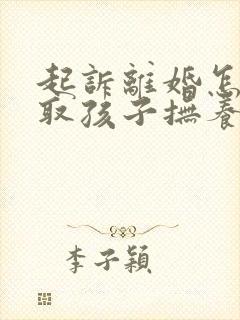 起訴離婚怎
取孩子撫養
李子穎